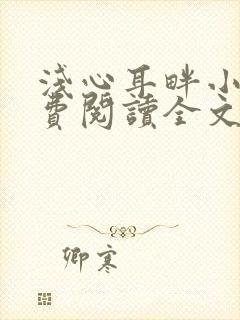 淺心耳畔小
費閱讀全文
卿寒